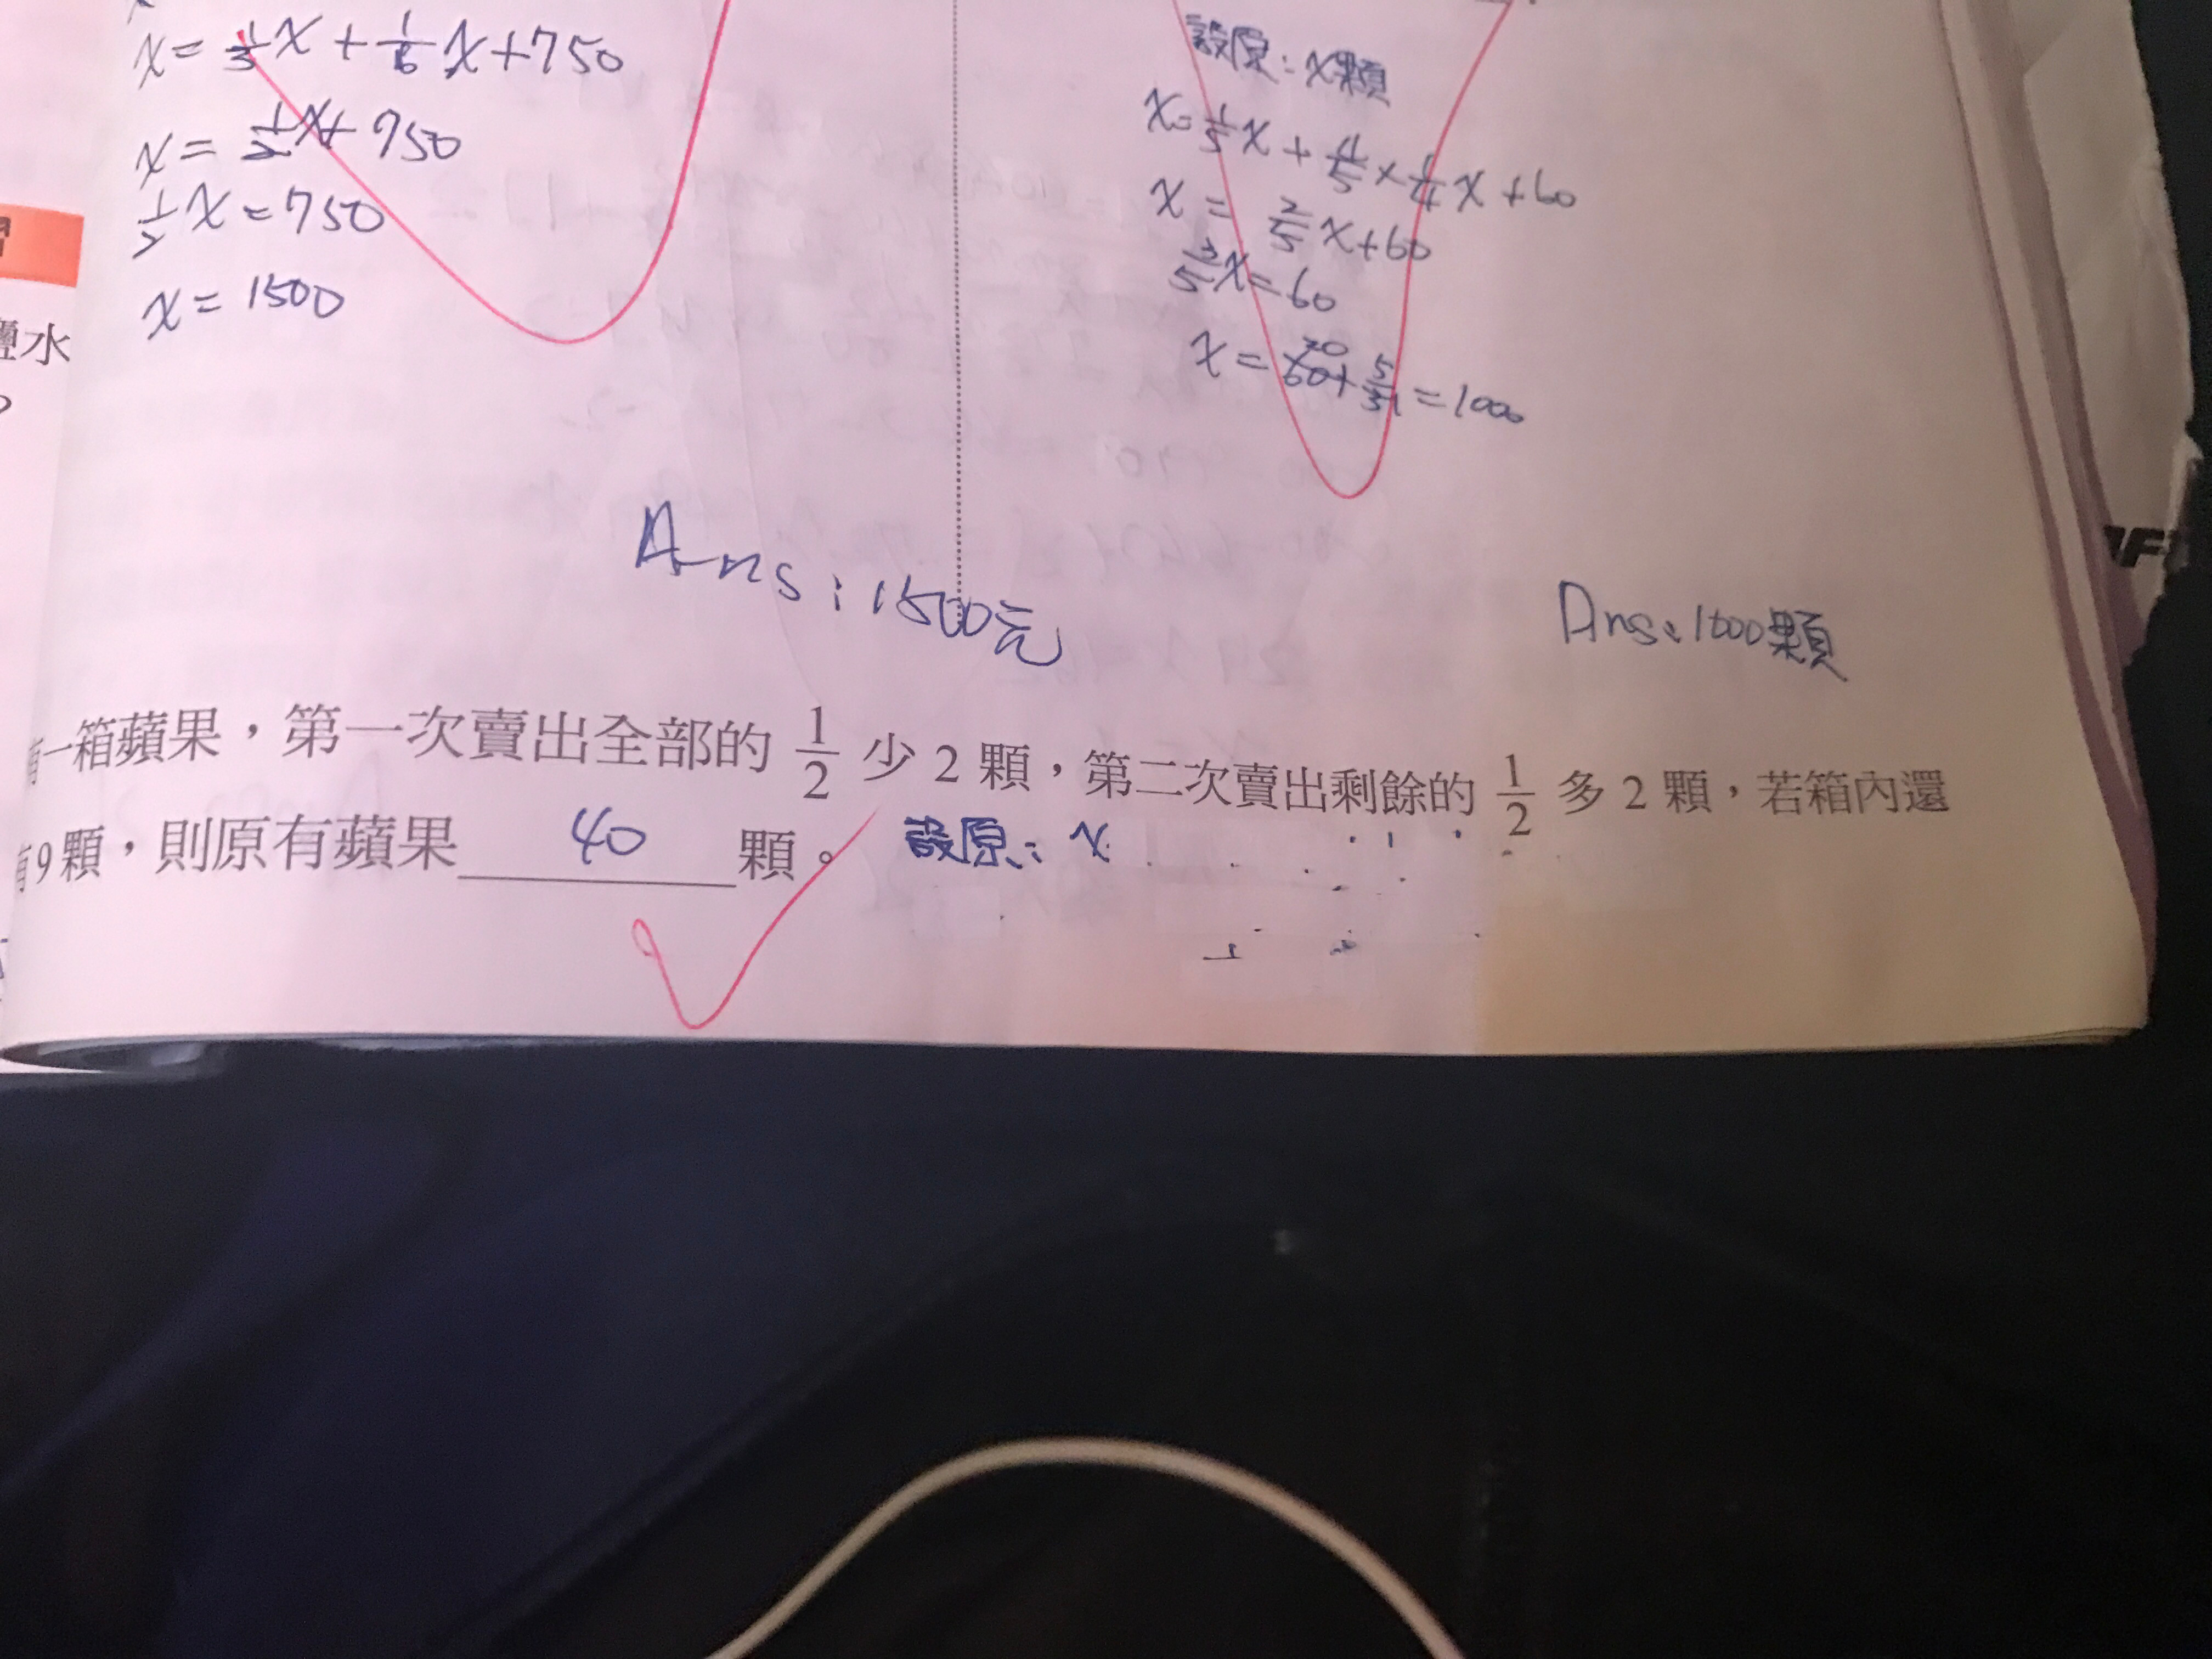 x = 1/3 x + 1/6 x + 750
x = 1/2 x + 750
1/2 x = 750
x = 1500
Ans: 1500元
設原: x顆
x = 1/5 x + 4/5 × 1/4 x + 60
x = 2/5 x + 60
3/5 x = 60
= 1000
Ans: 1000顆
一箱蘋果，第一次賣出全部的 1/2 少 2 顆，第二次賣出剩餘的 1/2 多 2 顆，若箱內還
有9顆，則原有蘋果 40 顆。 設原: x
水